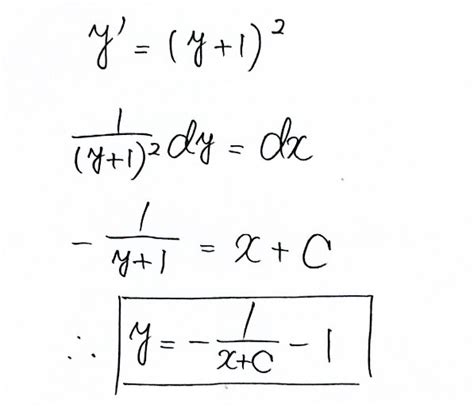 y' = (y+1)²
1/(y+1)² dy = dx
- 1/(y+1) = x + C
∴ y = - 1/(x+C) - 1